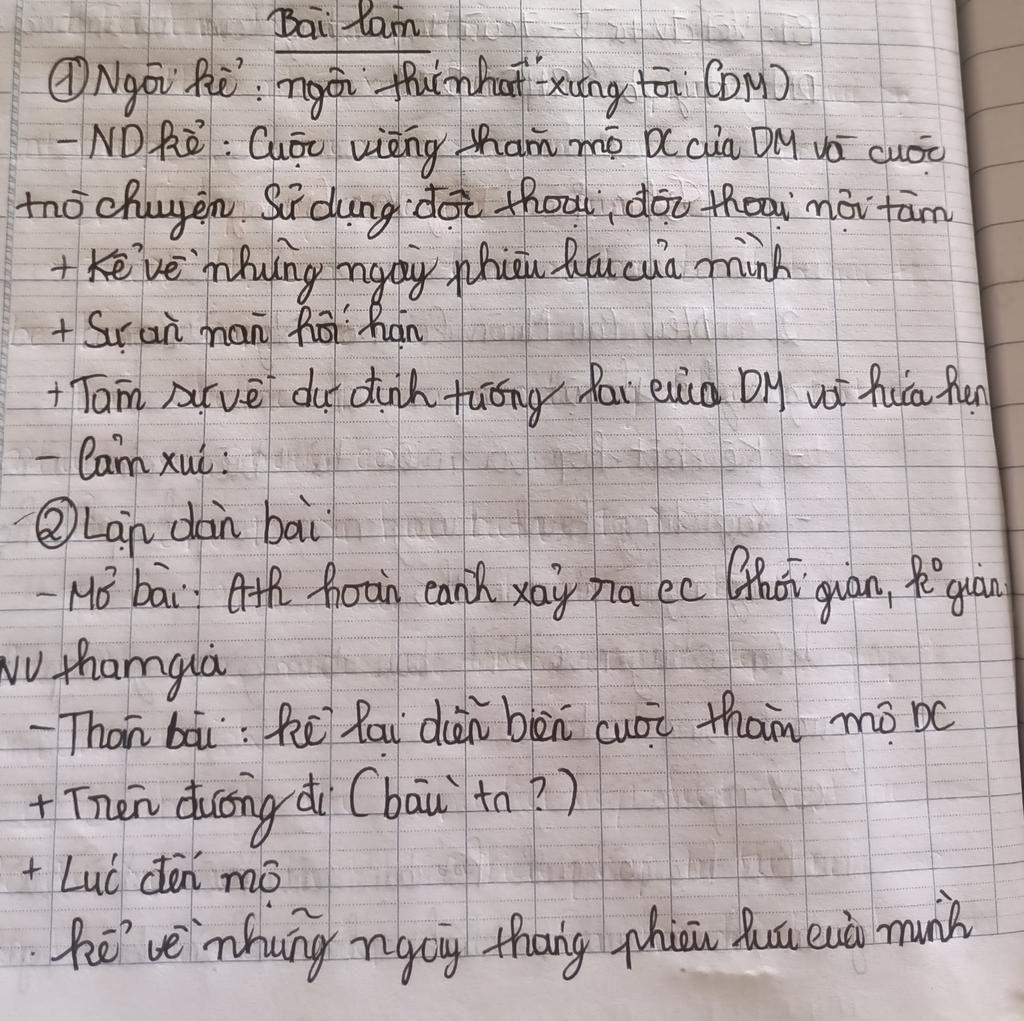 Bài làm
① Ngôi kể: ngôi thứ nhất - xưng tôi (DM)
- ND kể: Cuộc viếng thăm mộ DC của DM và cuộc
trò chuyện. Sử dụng: độc thoại, độc thoại nội tâm
+ Kể về những ngày phiêu lưu của mình
+ Sự ăn năn hối hận
+ Tâm sự về dự định tương lai của DM và hứa hẹn
- Cảm xúc:
② Lập dàn bài
- Mở bài: Gth hoàn cảnh xảy ra cc (thời gian, k° gian
NV tham gia
- Thân bài: kể lại diễn biến cuộc thăm mộ DC
+ Trên đường đi (bầu tr ?)
+ Lúc đến mộ
. kể về những ngày tháng phiêu lưu của mình